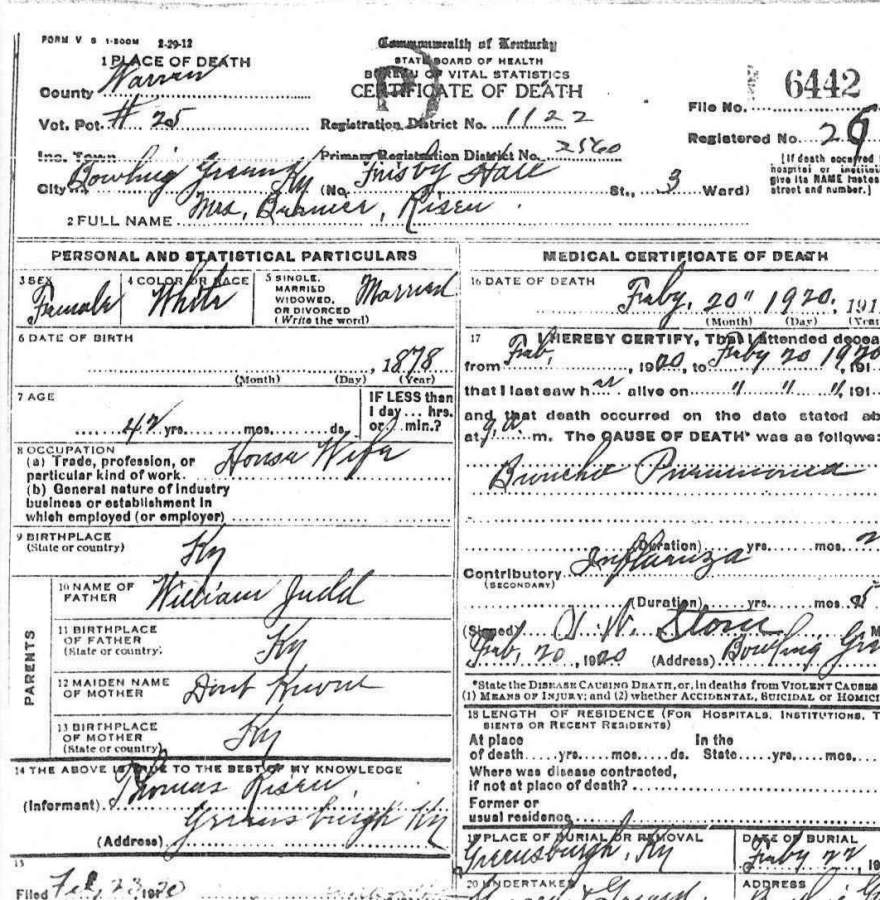 FORM V S 1-500M 2-29-12
Commonwealth of Kentucky
STATE BOARD OF HEALTH
BUREAU OF VITAL STATISTICS
CERTIFICATE OF DEATH
1 PLACE OF DEATH
County Warren
Vot. Pct. # 25
Registration District No. 1122
File No. 6442
Registered No. 26
Inc. Town
Primary Registration District No. 2560
City Bowling Green Ky (No. Frisby Hall St., 3 Ward)
[If death occurred
hospital or institu
give its NAME instea
street and number.]
2 FULL NAME Mrs, Risen
PERSONAL AND STATISTICAL PARTICULARS
3 SEX Female
4 COLOR OR RACE White
5 SINGLE, MARRIED WIDOWED, OR DIVORCED (Write the word) Married
6 DATE OF BIRTH
, 1878
(Month) (Day) (Year)
7 AGE
42 yrs. mos. ds.
IF LESS than
1 day... hrs.
or min.?
8 OCCUPATION
(a) Trade, profession, or
particular kind of work. House Wife
(b) General nature of industry
business or establishment in
which employed (or employer)
9 BIRTHPLACE
(State or country) Ky
PARENTS
10 NAME OF FATHER William Judd
11 BIRTHPLACE OF FATHER (State or country) Ky
12 MAIDEN NAME OF MOTHER Dont Know
13 BIRTHPLACE OF MOTHER (State or country) Ky
14 THE ABOVE IS TRUE TO THE BEST OF MY KNOWLEDGE
(Informant) Thomas Risen
(Address) Greensburgh Ky
15
Filed Feb, 23, 1920
MEDICAL CERTIFICATE OF DEATH
16 DATE OF DEATH
Feby, 20" 1920, 191
(Month) (Day) (Year
17 I HEREBY CERTIFY, That I attended decea
from Feb, 1920, to Feby 20 1920, 191
that I last saw her alive on " " ", 191
and that death occurred on the date stated ab
at 9 a. m. The CAUSE OF DEATH* was as follows:
Broncho Pneumonia
(Duration) yrs. mos. 2
Contributory Influenza
(SECONDARY)
(Duration) yrs. mos 5
(Signed) W. Stone M
Feb, 20, 1920 (Address) Bowling Gre
*State the DISEASE CAUSING DEATH, or, in deaths from VIOLENT CAUSES
(1) MEANS OF INJURY; and (2) whether ACCIDENTAL, SUICIDAL OR HOMICI
18 LENGTH OF RESIDENCE (FOR HOSPITALS, INSTITUTIONS, T
SIENTS OR RECENT RESIDENTS)
At place In the
of death yrs. mos. ds. State yrs. mos.
Where was disease contracted,
if not at place of death?
Former or
usual residence
19 PLACE OF BURIAL OR REMOVAL
Greensburgh, Ky
DATE OF BURIAL
Feby 22, 19
20 UNDERTAKER
ADDRESS